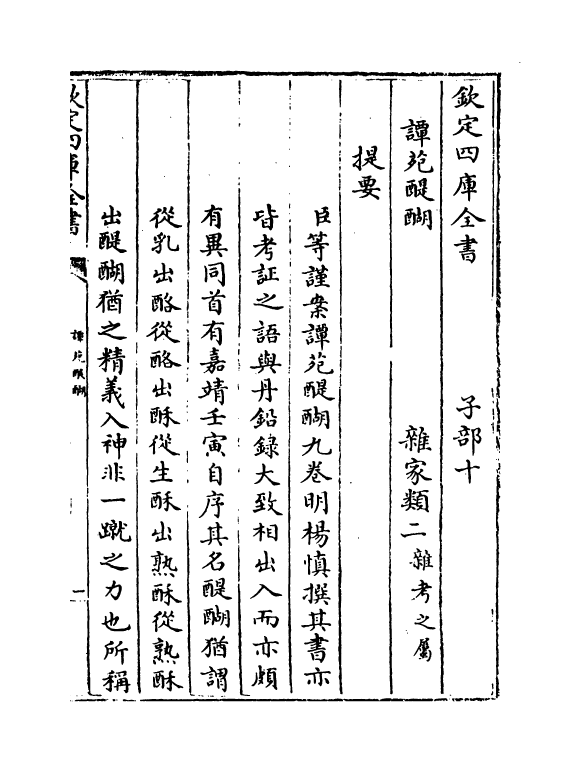 欽定四庫全書　子部十
譚苑醍醐　雜家類二雜考之屬
提要
臣等謹案譚苑醍醐九卷明楊慎撰其書亦
皆考証之語與丹鉛録大致相出入而亦頗
有異同首有嘉靖壬寅自序其名醍醐猶謂
從乳出酪從酪出酥從生酥出熟酥從熟酥
出醍醐猶之精義入神非一蹴之力也所稱
欽定四庫全書　譚苑醍醐　一